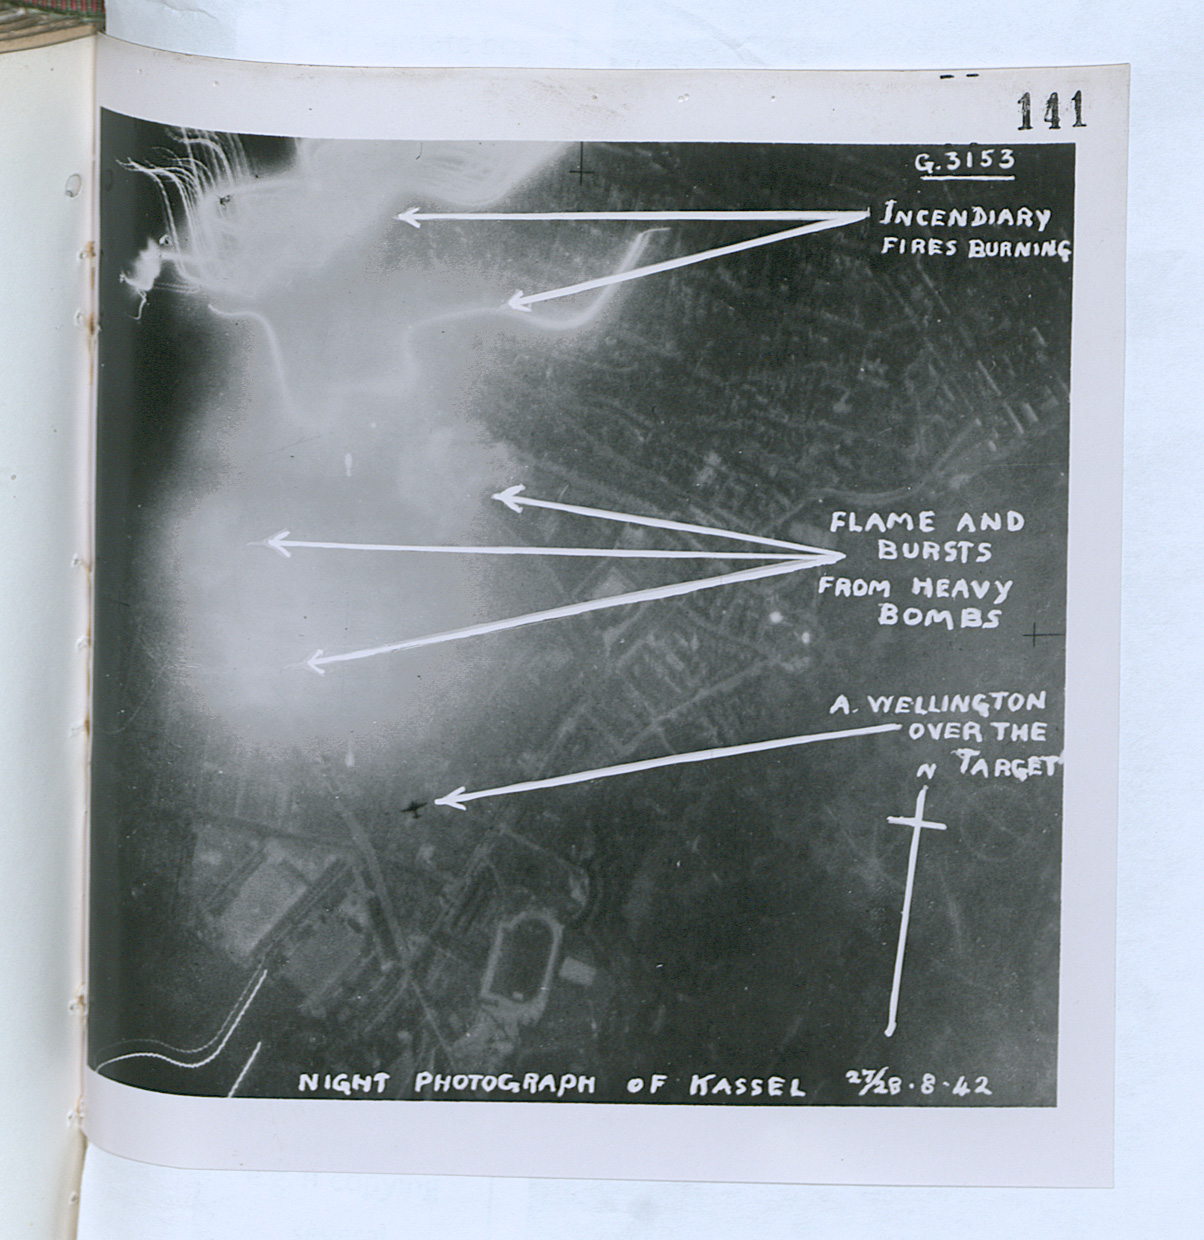 141
G.3153
INCENDIARY
FIRES BURNING
FLAME AND
BURSTS
FROM HEAVY
BOMBS
A. WELLINGTON
OVER THE
TARGET
N
NIGHT PHOTOGRAPH OF KASSEL 27/28.8.42